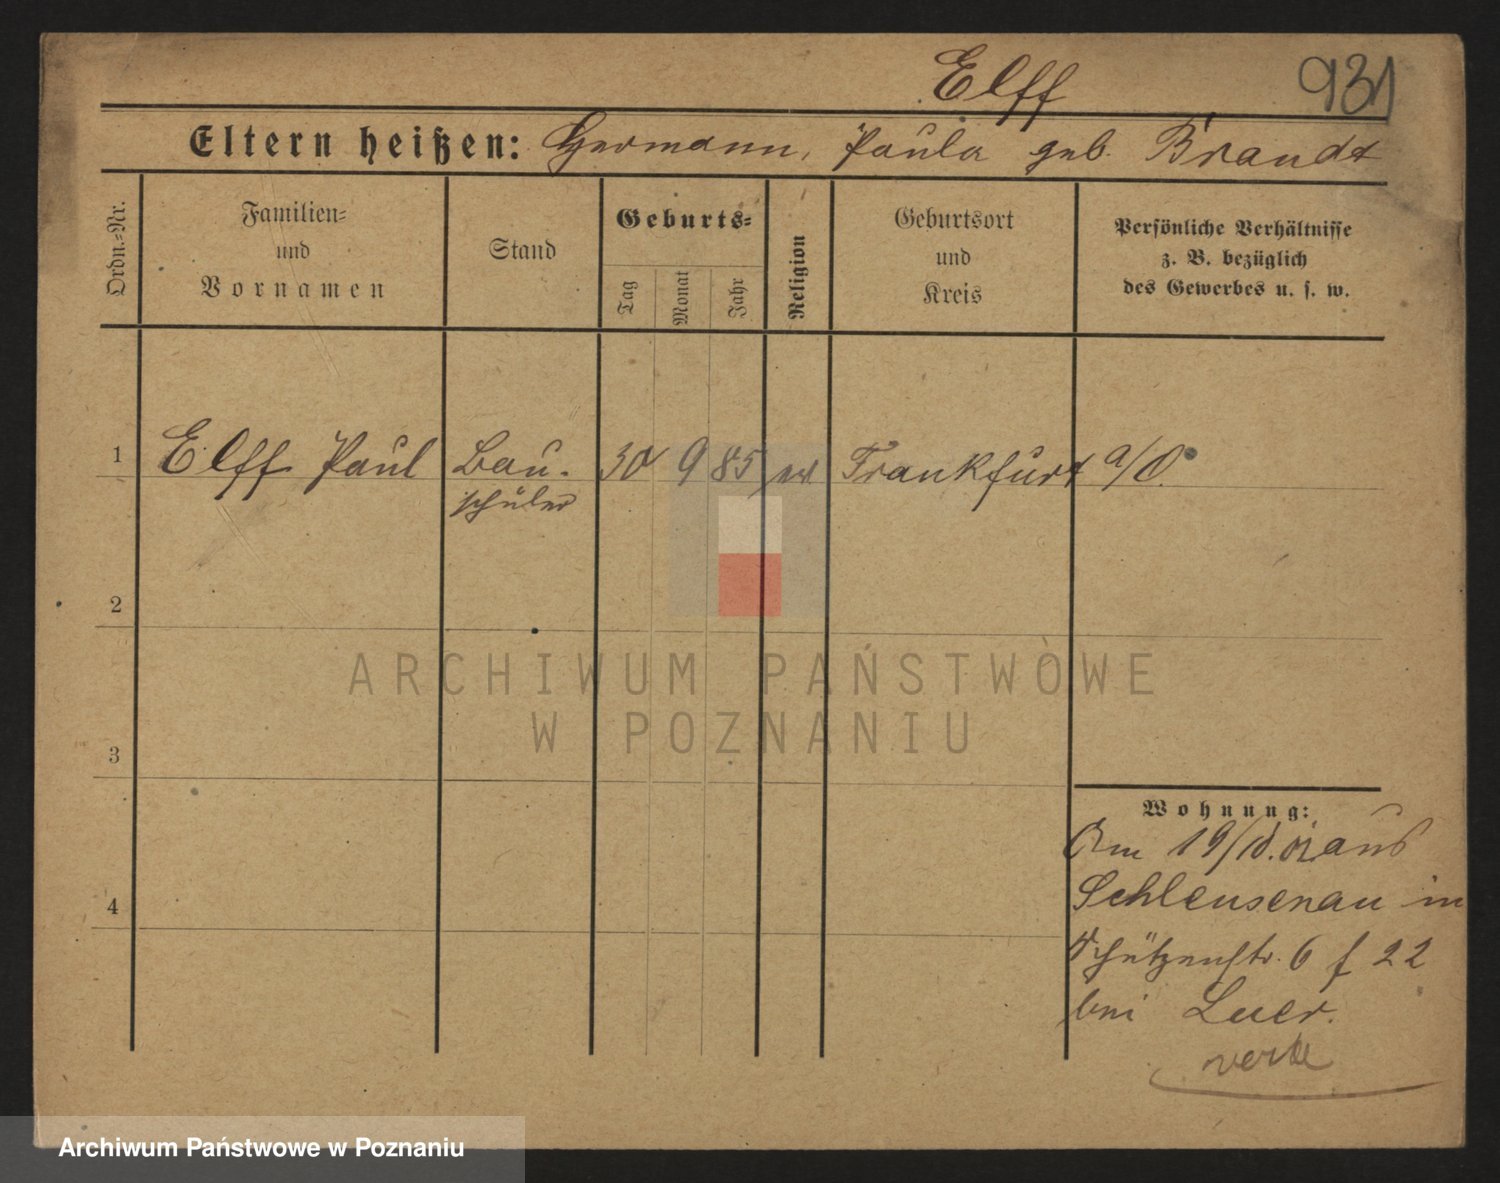 Elff 931
Eltern heißen: Hermann, Paula geb. Brandt
Ordn.-Nr.
Familien-
und
Vornamen
Stand
Geburts-
Tag
Monat
Jahr
Religion
Geburtsort
und
Kreis
Persönliche Verhältnisse
z. B. bezüglich
des Gewerbes u. s. w.
1 Elff Paul Bau- 30 9 85 ev. Frankfurt a/O.
schüler
2
3
4
Wohnung:
Am 19/10. aus
Schleusenau in
Schützenstr. 6 f 22
bei Luer.
ARCHIWUM PAŃSTWOWE
W POZNANIU
Archiwum Państwowe w Poznaniu